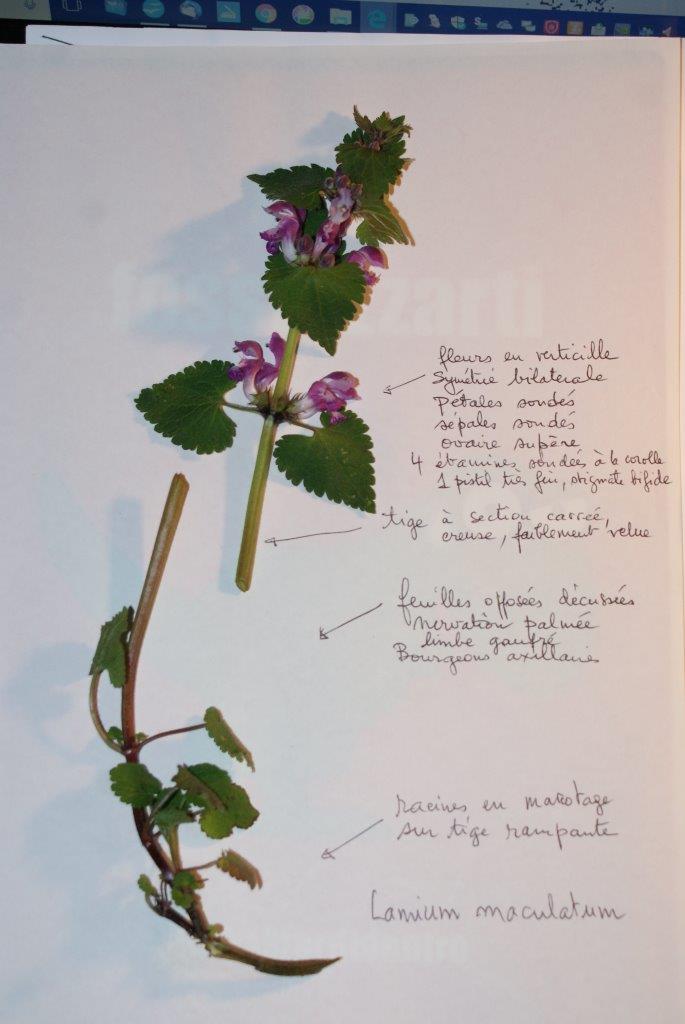 fleurs en verticille
Symétrie bilaterale
Pétales soudés
sépales soudés
ovaire supère
4 étamines soudées à la corolle
1 pistil très fin, stigmate bifide
tige à section carrée,
creuse, faiblement velue
feuilles opposées décussées
nervation palmée
limbe gaufré
Bourgeons axillaires
racines en marcotage
sur tige rampante
Lamium maculatum